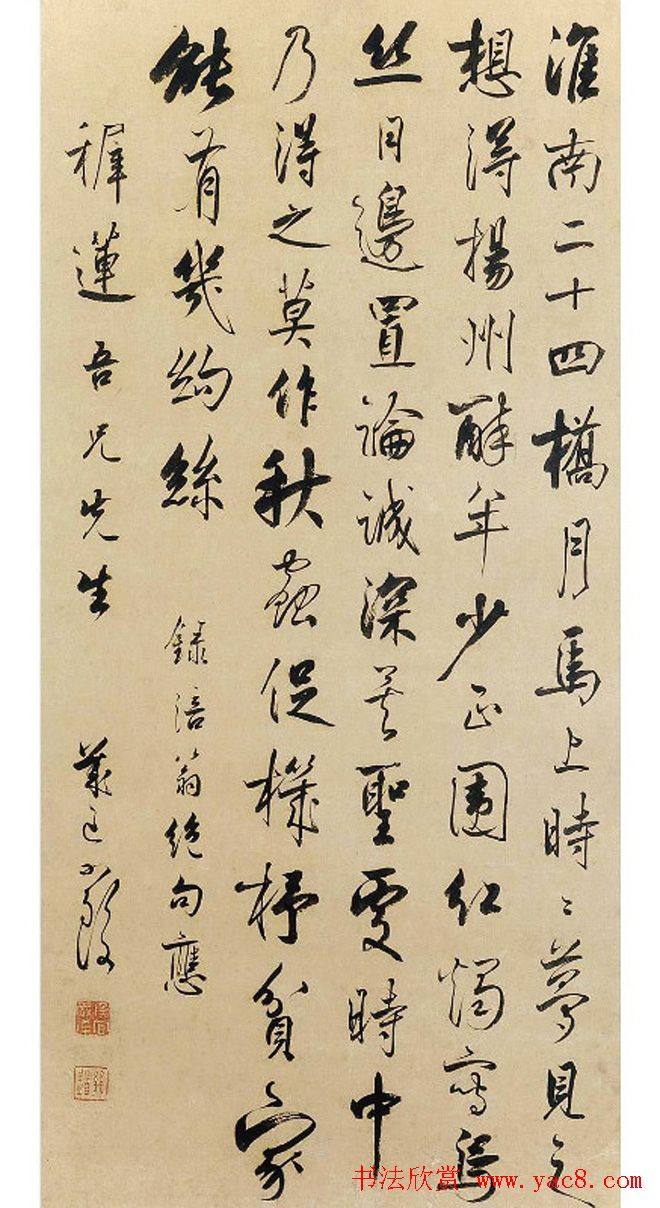 淮南二十四橋月馬上時〻夢見之
想得揚州醉年少正圍紅燭寫烏
丝日邊置論誠深矣聖處時中
乃得之莫作秋蟲促機杼貧家
能有幾絇絲 錄涪翁絕句應
穉蓮吾兄先生
书法欣赏 www.yac8.com